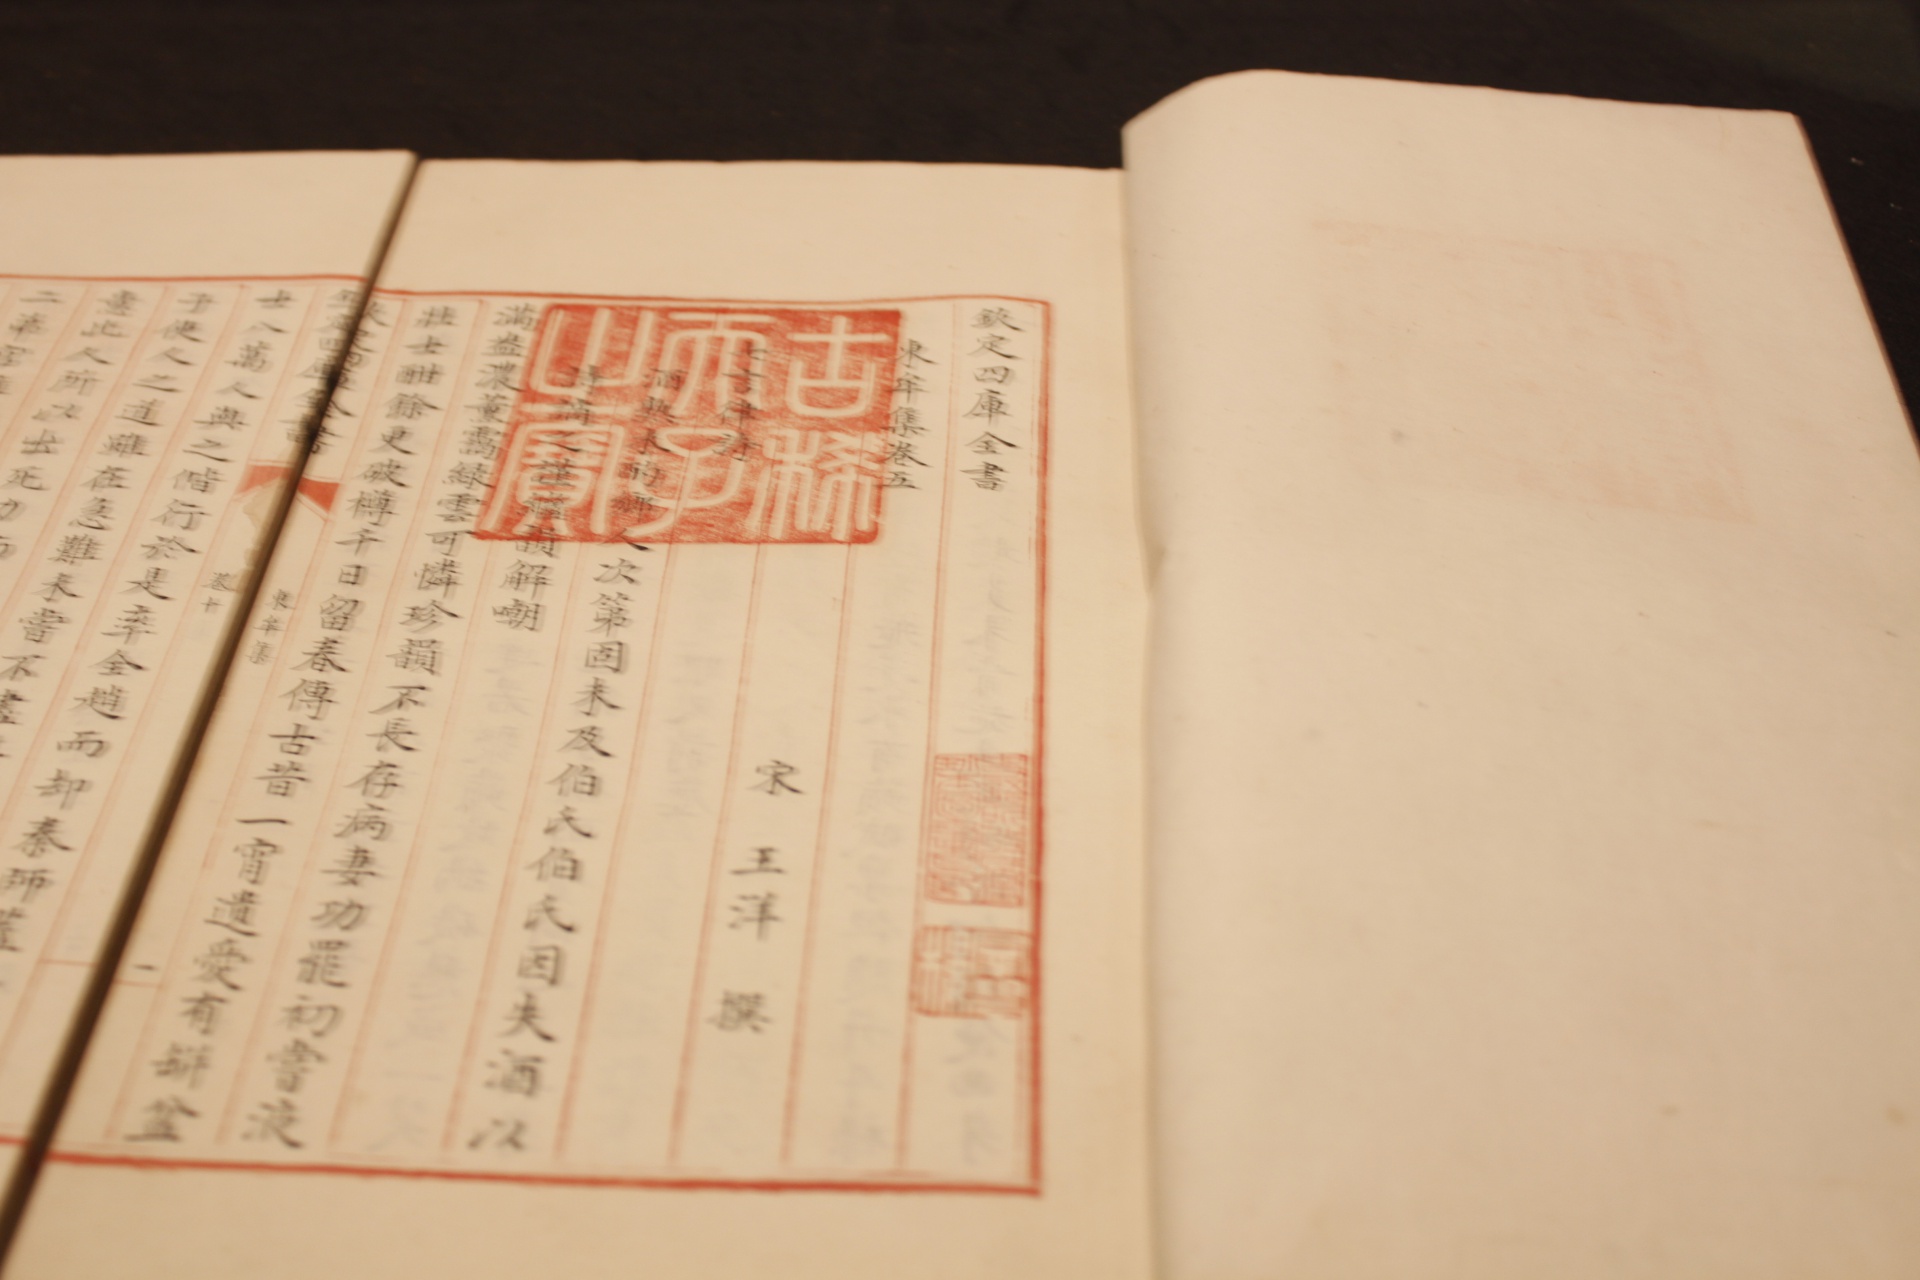 欽定四庫全書
東牟集卷五
宋 王洋 撰
七言律詩
酒熟未酌鄉人次第固未及伯氏伯氏因失酒以
詩誚之謹繼韻解嘲
滿盎濃薰靄綠雲可憐珍韻不長存病妻功罷初嘗液
壯士酣餘更破樽千日留春傳古昔一宵遺愛有辦盆
欽定四庫全書
東牟集
一
卷十
士八萬人與之偕行於是率全趙而却秦師蓋
于使人之道雖在急難未嘗不盡
盡此人所以出死力而
二卒官雖
古稀天子之寶